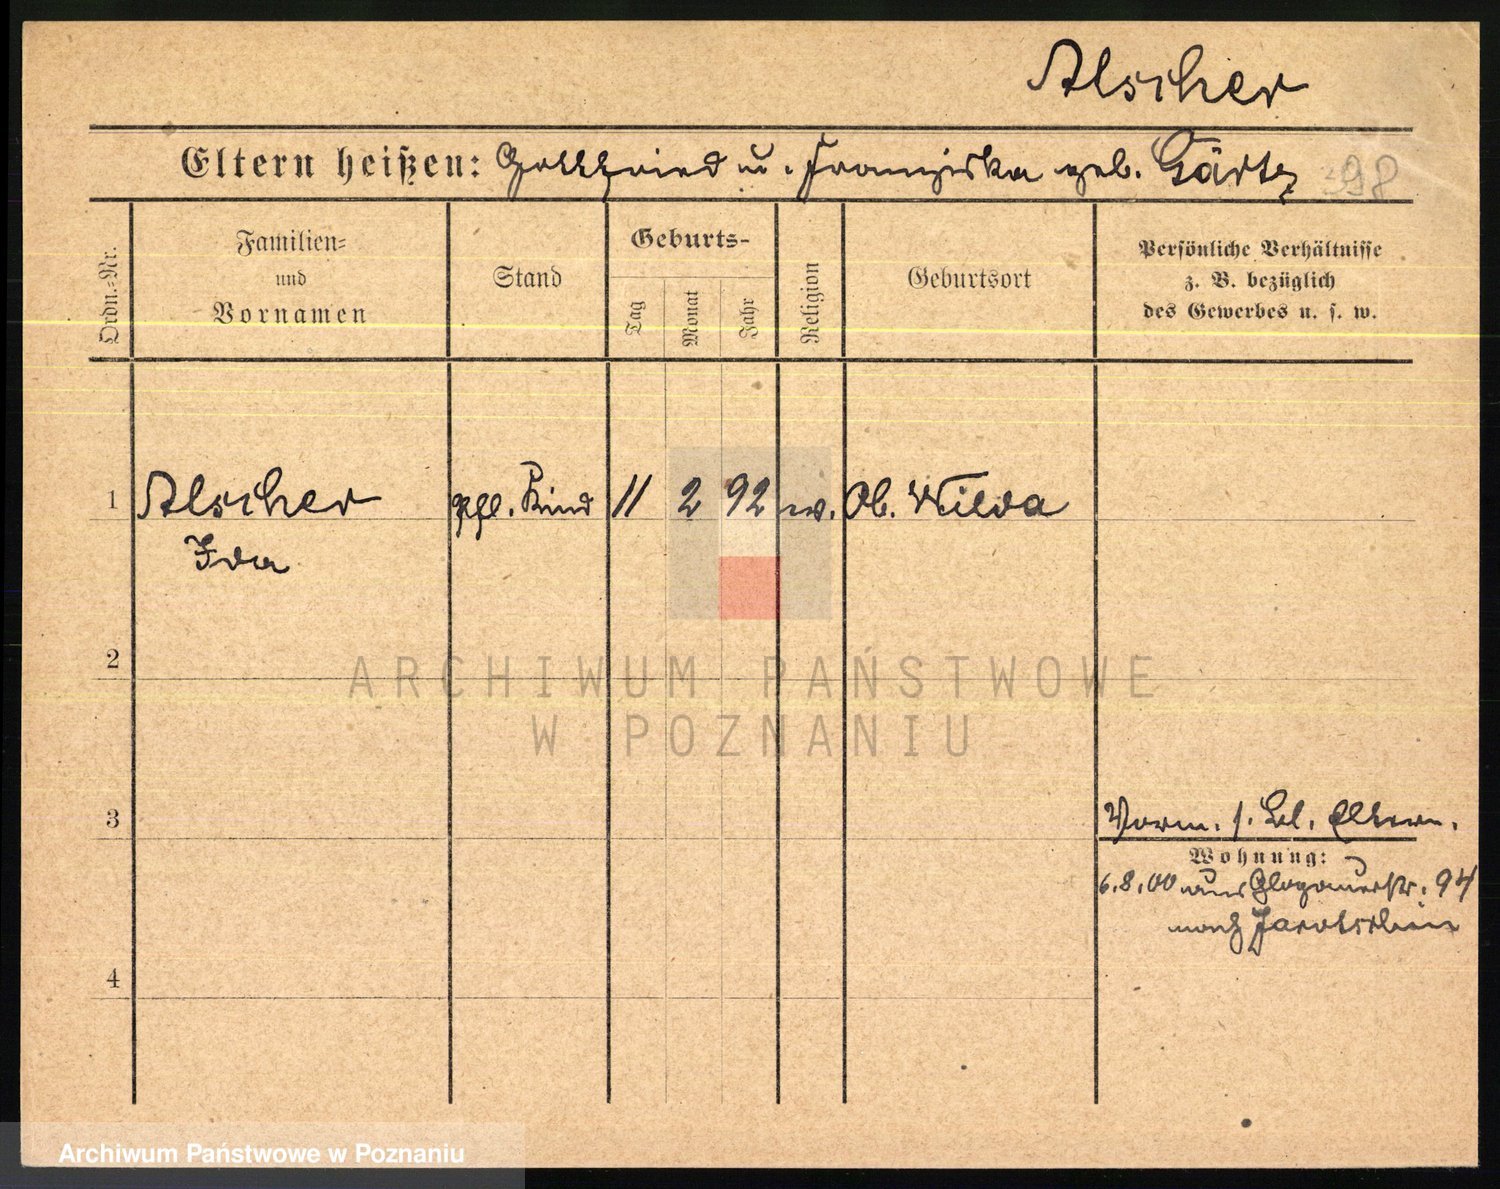 Alscher
Eltern heißen: Gottfried u. Franziska geb. Gärtz 98
Ordn.-Nr.
Familien-
und
Vornamen
Stand
Geburts-
Tag
Monat
Jahr
Religion
Geburtsort
Persönliche Verhältnisse
z. B. bezüglich
des Gewerbes u. s. w.
1 Alscher pfl. Kind 11 2 92 ev. Ob. Wilda
Ida
2
ARCHIWUM PAŃSTWOWE
W POZNANIU
3
Vorm. s. Eltern.
Wohnung:
6.8.00 aus Glogauerstr. 94
nach Jarotschin
4
Archiwum Państwowe w Poznaniu